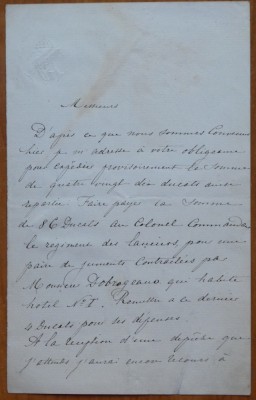 Monsieur
D'après ce que nous sommes convenus
hier, je m'adresse à votre obligeance
pour expédier provisoirement la somme
de quatre vingt dix ducats
Faire payer la somme
de 86 Ducats au Colonel Commandant
le regiment des Lanciers, pour une
paire de juments Contractées par
Monsieur Dobrogeano qui habite
hotel No 1. Remettre a ce dernier
4 Ducats pour ses dépenses.
A la réception d'une dépêche que
j'attends j'aurai encore recours à